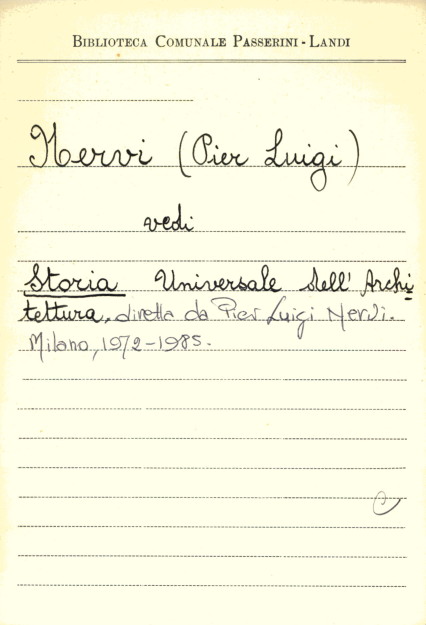 BIBLIOTECA COMUNALE PASSERINI - LANDI
Nervi (Pier Luigi)
vedi
Storia Universale dell' Archi-
tettura, diretta da Pier Luigi Nervi.
Milano, 1972-1985.